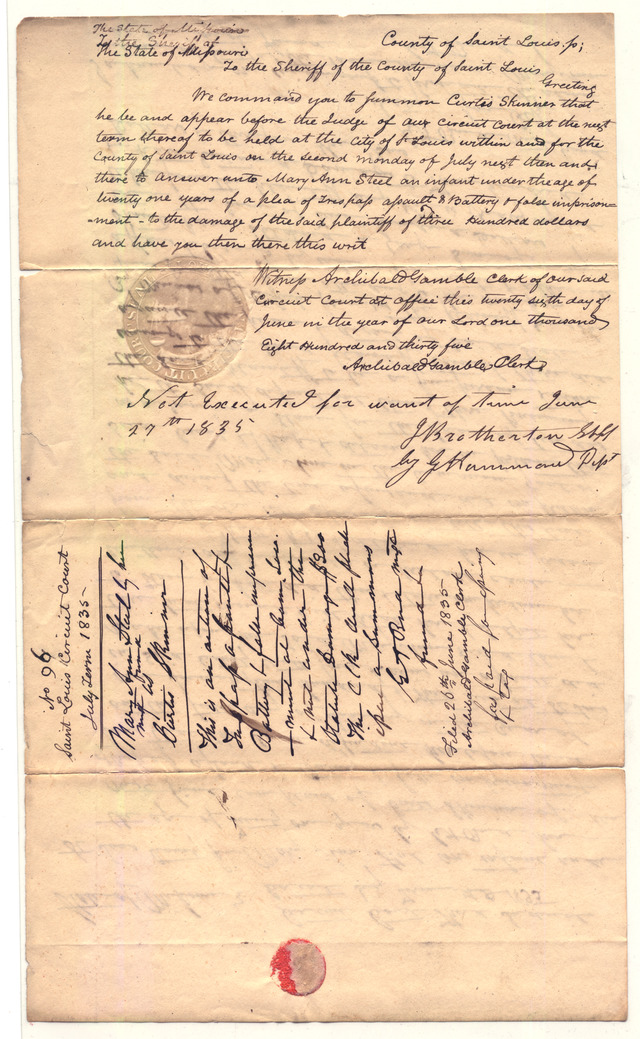 The State of Missouri
To the Sheriff of
The State of Missouri
County of Saint Louis ss;
To the Sheriff of the County of Saint Louis
Greeting
We command you to summon Curtis Skinner that
he be and appear before the Judge of our circuit court at the next
term thereof to be held at the City of St Louis within and for the
County of Saint Louis on the second monday of July next then and
there to answer unto Mary Ann Steel an infant under the age of
twenty one years of a plea of Trespass assault & Battery & false imprison
-ment - to the damage of the said plaintiff of three Hundred dollars
and have you then there this writ
Witness Archibald Gamble Clerk of our said
Circuit Court at office this twenty sixth day of
June in the year of our Lord one thousand
Eight Hundred and thirty five
Archibald Gamble Clerk
Not Executed for want of time June
27th 1835
J Brotherton Shff
by G Hammond Dept
No 96
Saint Louis Circuit Court
July Term 1835
Mary Ann Steel by her
Curtis Skinner
This is an action of
Trespass assault &
Battery & false imprison
ment at com. law
& not under the
Statute Damage $300
The Clk will please
issue a summons
Filed 26th June 1835
Archibald Gamble Clerk